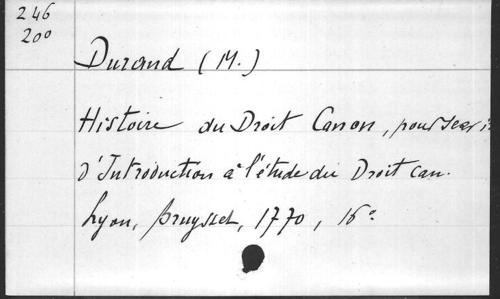 246
200
Durand (M.)
Histoire du Droit Canon, pour
d'Introduction à l'étude du Droit can.
Lyon, Bruyset, 1770, 16°